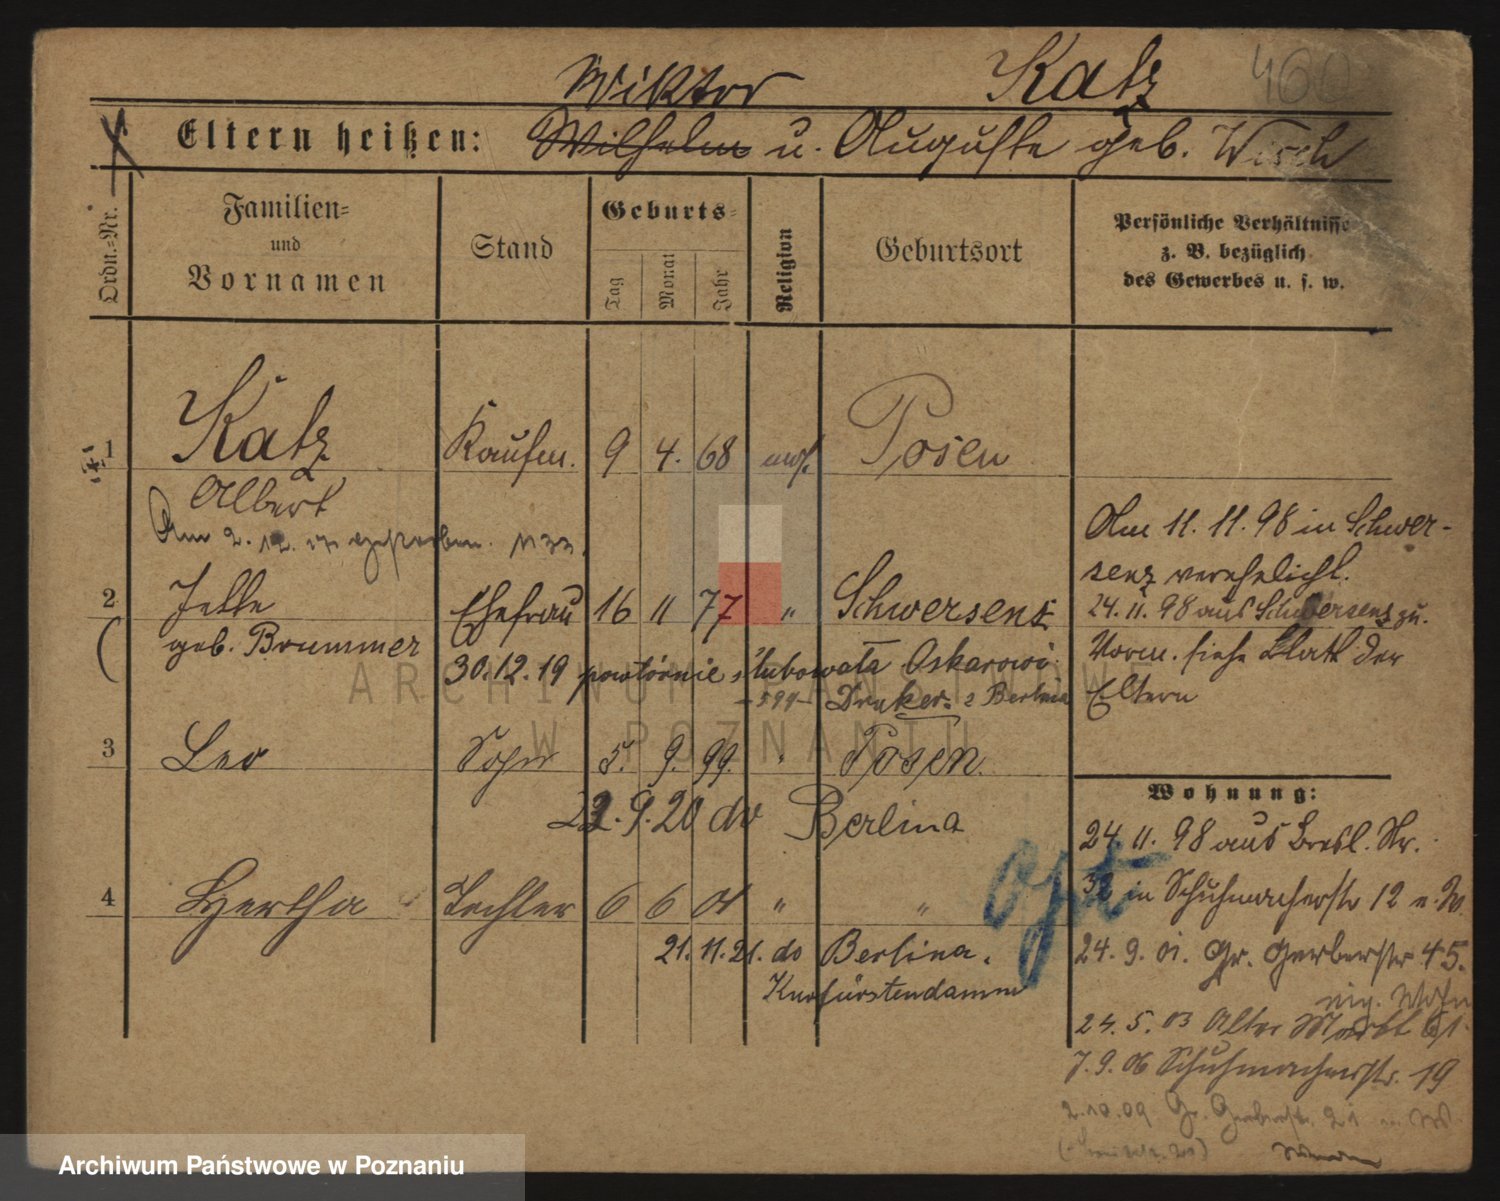 Wiktor Katz 460
Eltern heißen: Wilhelm u. Auguste geb. Wisch
Ordn.-Nr.
Familien-
und
Vornamen
Stand
Geburts-
Tag
Monat
Jahr
Religion
Geburtsort
Persönliche Verhältnisse
z. B. bezüglich
des Gewerbes u. s. w.
1 Katz Kaufm. 9 4. 68 mos. Posen
Albert
Am 2. 12. 17 gestorben.
Am 11. 11. 98 in Schwer-
senz verehelicht.
2 Jette Ehefrau 16 11 77 " Schwersenz
geb. Brummer
24. 11. 98 aus Schwersenz zu.
30.12.19 powtórnie ślubowała Oskarowi
Vorm. siehe Blatt der
Druker z Berlina
Eltern
3 Leo Sohn 5. 9. 99. " Posen.
22. 9. 20 do Berlina
4 Hertha Tochter 6 6 01 " "
21. 11. 21. do Berlina.
Kurfürstendamm
Opt
Wohnung:
24. 11. 98 aus Bresl. Str.
32 in Schuhmacherstr 12 e. W.
24. 9. 01. Gr. Gerberstr 45.
eig. Wohn
24. 5. 03 Alter Markt 61.
7. 9. 06 Schuhmacherstr. 19
2.10.09 Gr. Gerberstr. 21
ARCHIWUM PAŃSTWOWE
W POZNANIU
Archiwum Państwowe w Poznaniu